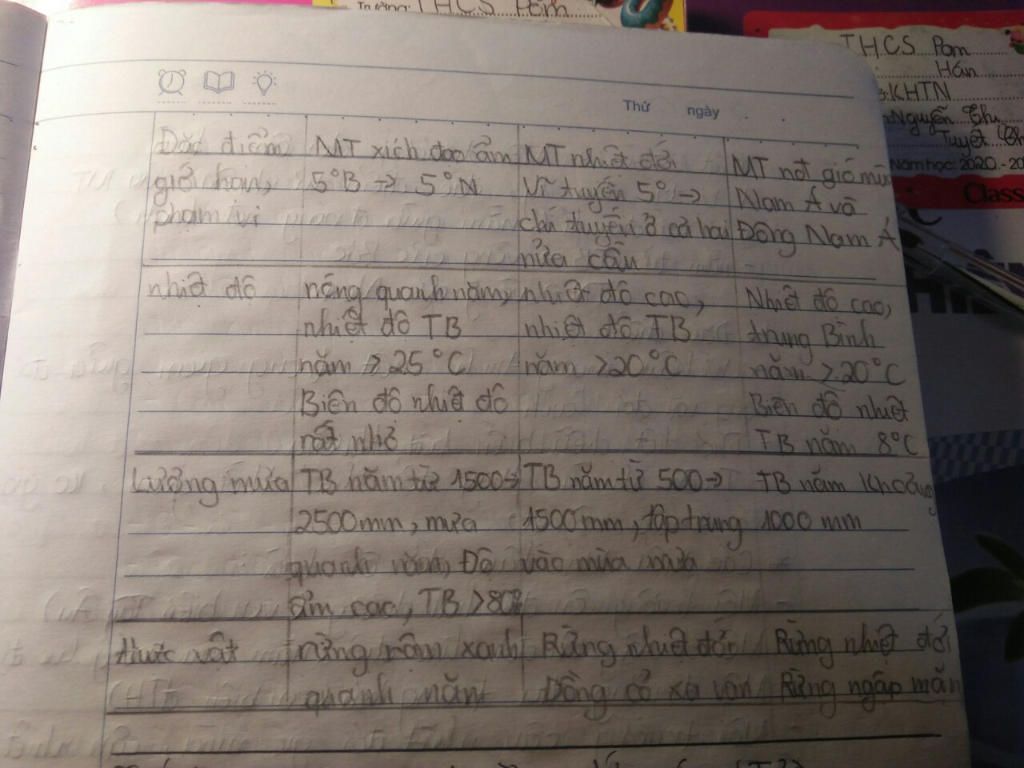 Trường: THCS Pom
THCS Pom
Hán
KHTN
Nguyễn Thu
Tuyết
Năm học: 2020 - 20
Class
Thứ ngày
Đặc điểm MT xích đạo ẩm MT nhiệt đới MT nđ gió mù
giới hạn, 5°B → 5°N Vĩ tuyến 5° → Nam Á và
phạm vi chí tuyến ở cả hai Đông Nam Á
nửa cầu
nhiệt độ nóng quanh năm, nhiệt độ cao, Nhiệt độ cao,
nhiệt độ TB nhiệt độ TB trung Bình
năm > 25°C năm >20°C năm >20°C
Biên độ nhiệt độ Biên độ nhiệt
rất nhỏ TB năm 8°C
Lượng mưa TB năm từ 1500→ TB năm từ 500→ TB năm khoảng
2500mm, mưa 1500mm, tập trung 1000 mm
quanh năm, Độ vào mùa mưa
ẩm cao, TB >80%
thực vật rừng rậm xanh Rừng nhiệt đới Rừng nhiệt đới
quanh năm Đồng cỏ xa van Rừng ngập mặn